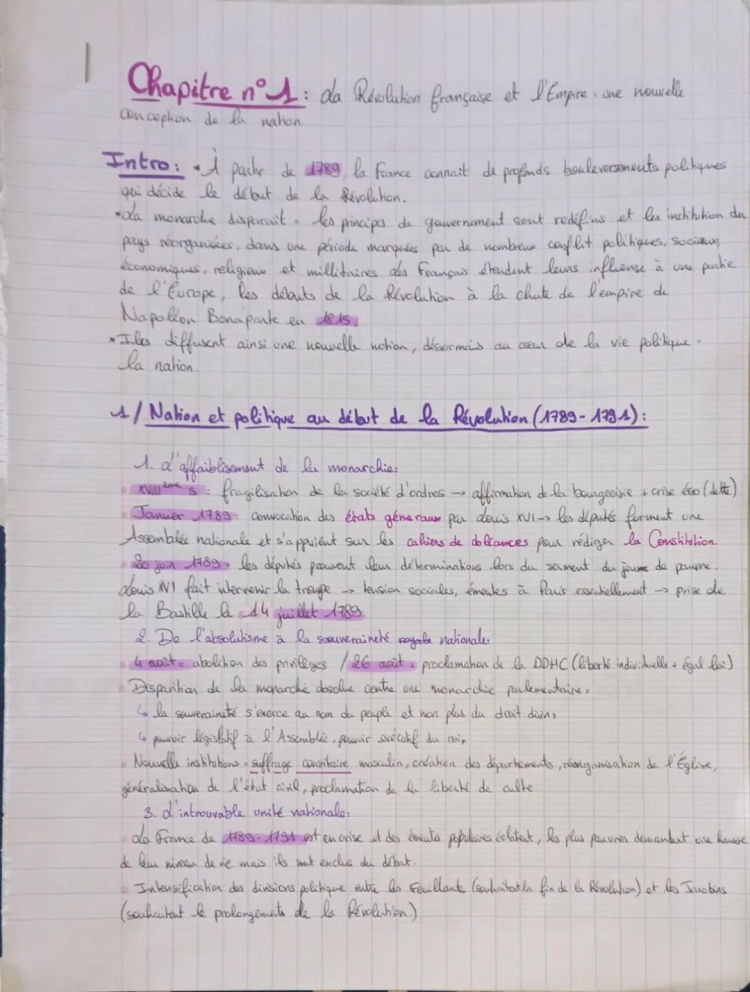 Chapitre n°1 : La Révolution française et l'Empire : une nouvelle
conception de la nation
Intro : • À partir de 1789, la France connait de profonds bouleversements politiques
qui décide le début de la Révolution.
• La monarchie disparait = les principes de gouvernement sont redéfins et les institution du
pays réorganisées, dans une période marquées par de nombreux conflit politiques, sociaux,
économiques, religieux et millitaires des Français étendent leurs influense à une partie
de l'Europe, les débuts de la Révolution à la chute de l'empire de
Napoléon Bonaparte en 1815.
• Iles diffusent ainsi une nouvelle notion, désormais au cœur de la vie politique =
la nation.
1/ Nation et politique au début de la Révolution (1789-1791) :
1. L'affaiblisement de la monarchie :
XVIIIème s : fragilisation de la société d'ordres → affirmation de la bourgeoisie + crise éco (dette)
Janvier 1789 : convocation des états généraux par Louis XVI → les députés forment une
Assemblée nationale et s'appuient sur les cahiers de doléances pour rédiger la Constitution
20 juin 1789 : les députés prouvent leur déterminations lors du serment du jeume de paume.
Louis XVI fait intervenir la troupe → tension sociales, émeutes à Paris essentiellement → prise de
la Bastille le 14 juillet 1789.
2. De l'absolutisme à la souveraineté royale nationale :
4 août = abolition des privilèges / 26 août = proclamation de la DDHC (liberté individuelle + égal loi)
Disparition de la monarchie absolue contre une monarchie parlementaire =
↳ la souveraineté s'exerce au nom du peuple et non plus du droit divin,
↳ pouvoir législatif à l'Assemblée, pouvoir exécutif du roi,
Nouvelle institutions = suffrage censitaire masculin, création des départements, réorganisation de l'Église,
généralisation de l'état civil, proclamation de la liberté de culte.
3. L'introuvable unité nationale :
La France de 1789-1791 est en crise et des émeutes populaires éclatent, les plus pauvres demandent une hausse
de leur niveau de vie mais ils sont exclus du débat.
Intensification des divisions politique entre les Feuillants (souhaitent la fin de la Révolution) et les Jacobins
(souhaitent le prolongements de la Révolution.)